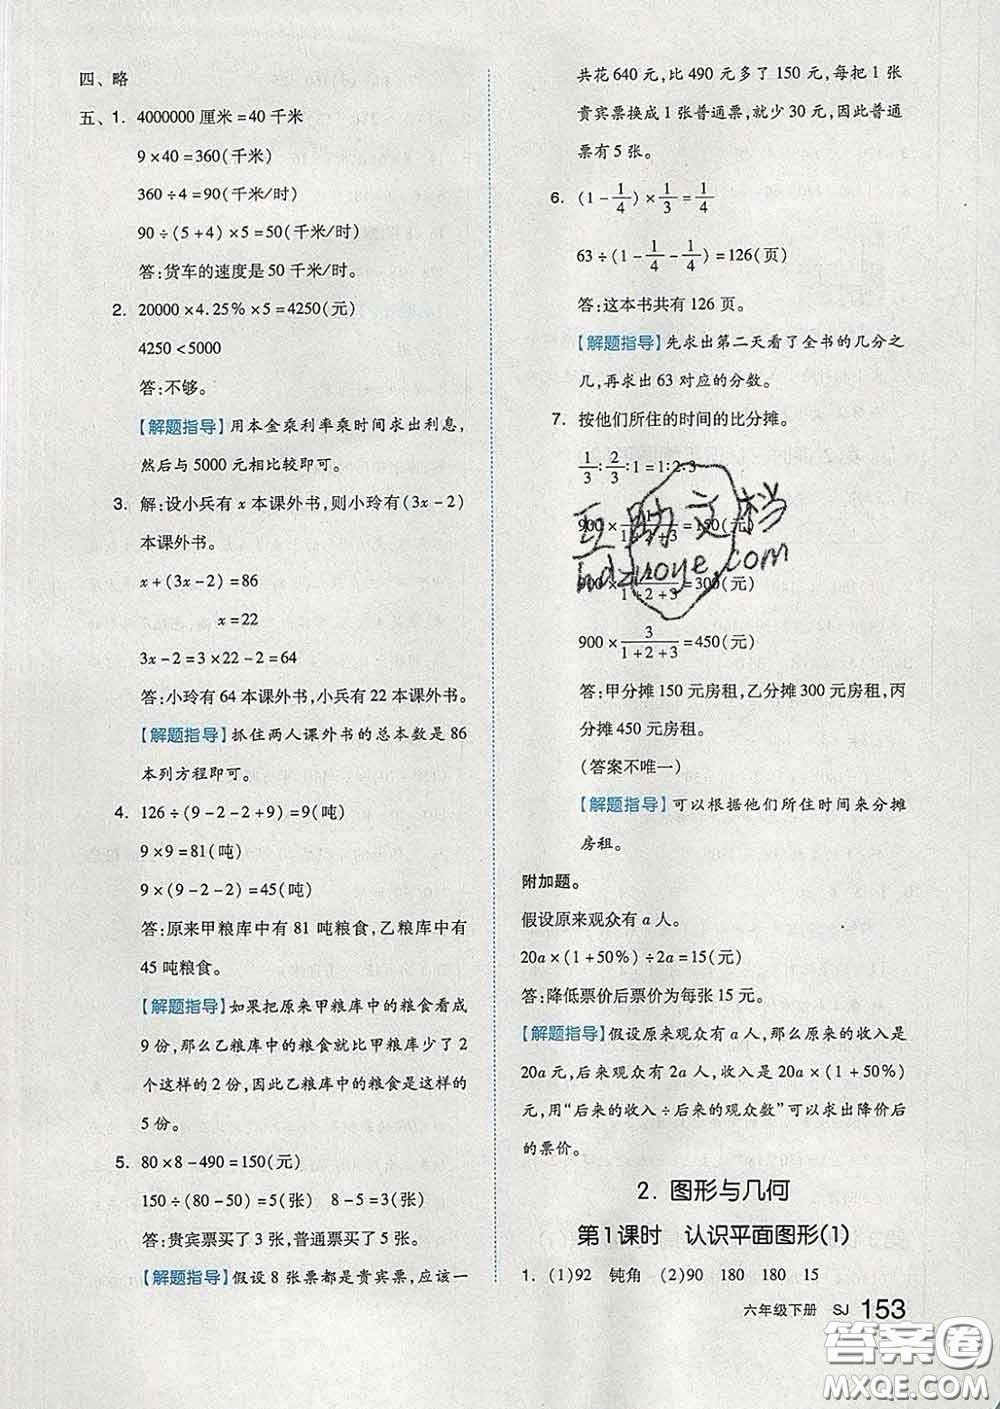 四、略
五、1. 4000000 厘米 = 40 千米
9 × 40 = 360(千米)
360 ÷ 4 = 90(千米/时)
90 ÷ (5 + 4) × 5 = 50(千米/时)
答:货车的速度是 50 千米/时。
2. 20000 × 4.25% × 5 = 4250(元)
4250 < 5000
答:不够。
【解题指导】用本金乘利率乘时间求出利息,
然后与 5000 元相比较即可。
3. 解:设小兵有 x 本课外书,则小玲有(3x - 2)
本课外书。
x + (3x - 2) = 86
x = 22
3x - 2 = 3 × 22 - 2 = 64
答:小玲有 64 本课外书,小兵有 22 本课外书。
【解题指导】抓住两人课外书的总本数是 86
本列方程即可。
4. 126 ÷ (9 - 2 - 2 + 9) = 9(吨)
9 × 9 = 81(吨)
9 × (9 - 2 - 2) = 45(吨)
答:原来甲粮库中有 81 吨粮食,乙粮库中有
45 吨粮食。
【解题指导】如果把原来甲粮库中的粮食看成
9 份,那么乙粮库中的粮食就比甲粮库少了 2
个这样的 2 份,因此乙粮库中的粮食是这样的
5 份。
5. 80 × 8 - 490 = 150(元)
150 ÷ (80 - 50) = 5(张) 8 - 5 = 3(张)
答:贵宾票买了 3 张,普通票买了 5 张。
【解题指导】假设 8 张票都是贵宾票,应该一
共花 640 元,比 490 元多了 150 元,每把 1 张
贵宾票换成 1 张普通票,就少 30 元,因此普通
票有 5 张。
6. (1 - 1/4) × 1/3 = 1/4
63 ÷ (1 - 1/4 - 1/4) = 126(页)
答:这本书共有 126 页。
【解题指导】先求出第二天看了全书的几分之
几,再求出 63 对应的分数。
7. 按他们所住的时间的比分摊。
1/3 : 2/3 : 1 = 1:2:3
900 × 1/(1 + 2 + 3) = 150(元)
900 × 2/(1 + 2 + 3) = 300(元)
900 × 3/(1 + 2 + 3) = 450(元)
答:甲分摊 150 元房租,乙分摊 300 元房租,丙
分摊 450 元房租。
(答案不唯一)
【解题指导】可以根据他们所住时间来分摊
房租。
附加题。
假设原来观众有 a 人。
20a × (1 + 50%) ÷ 2a = 15(元)
答:降低票价后票价为每张 15 元。
【解题指导】假设原来观众有 a 人,那么原来的收入是
20a 元,后来观众有 2a 人,收入是 20a × (1 + 50%)
元,用“后来的收入 ÷ 后来的观众数”可以求出降价后
的票价。
2. 图形与几何
第1课时 认识平面图形(1)
1. (1)92 钝角 (2)90 180 180 15
六年级下册 SJ 153
互助文档
hdzuoye.com
答案圈
MXQE.COM